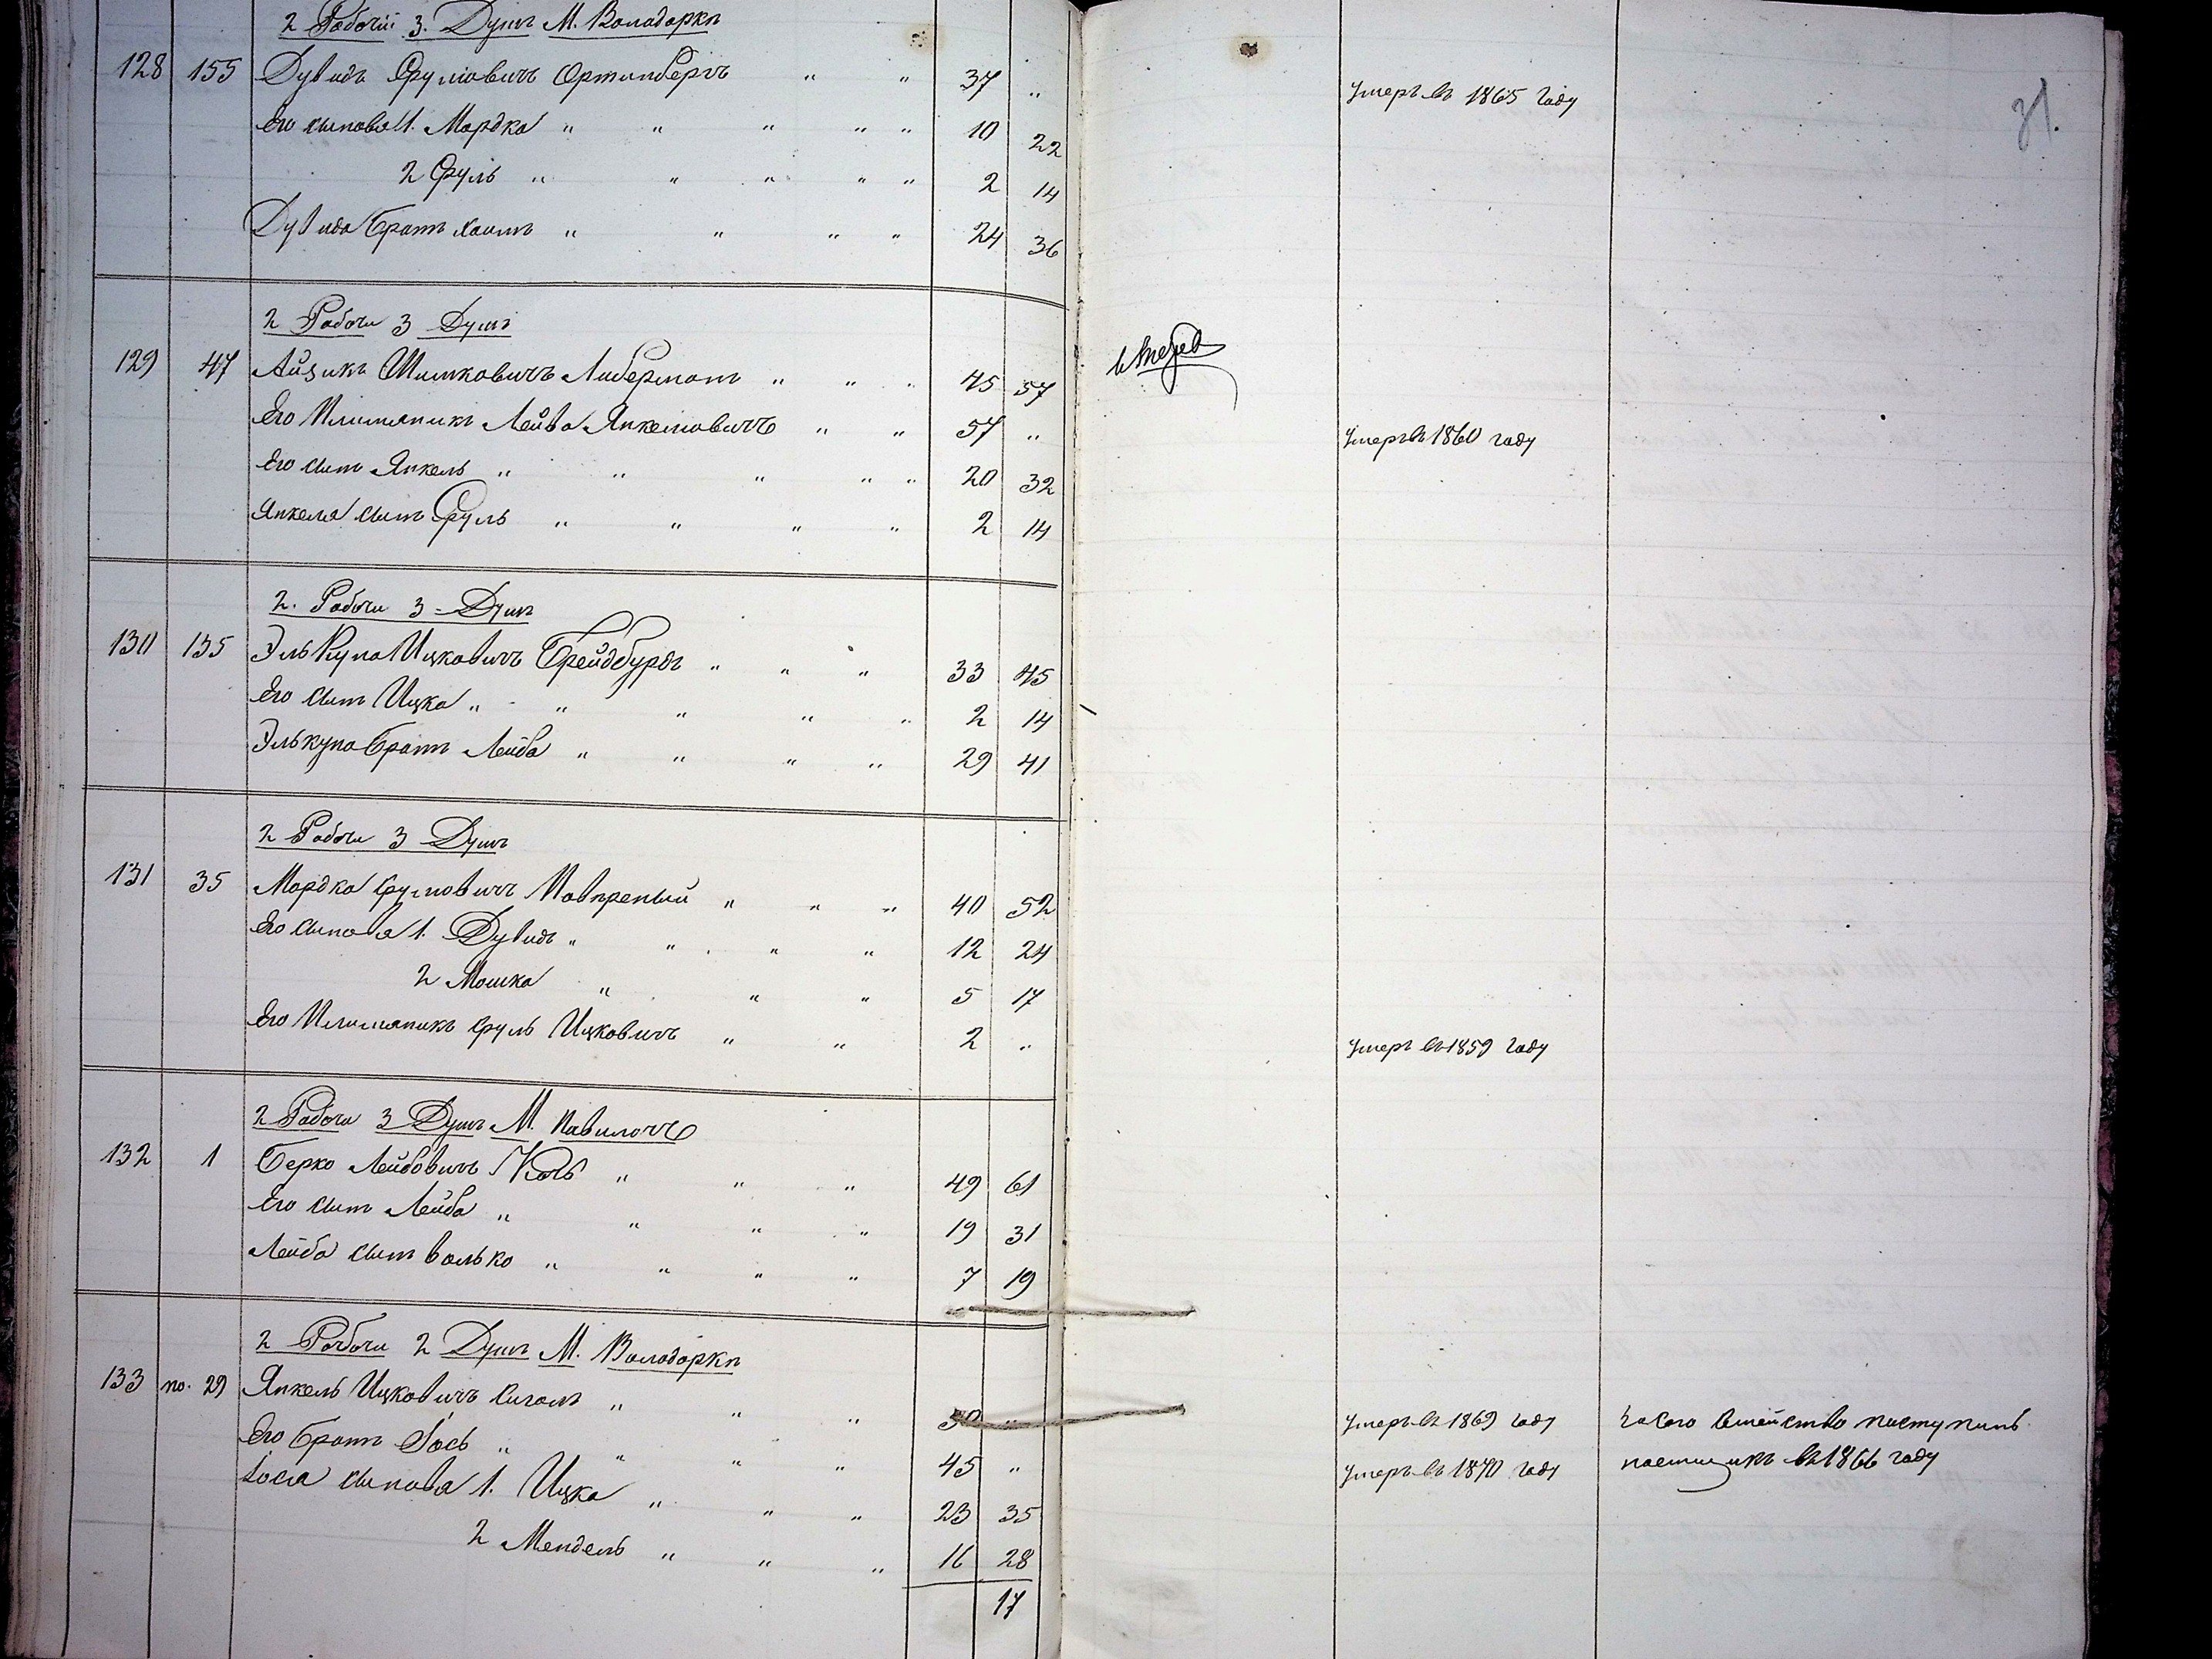 2 Рабочiй 3. Душъ М. Володарки
128 155 Дувидъ Сруліовичъ Ортинбергъ " " 37 " Умеръ въ 1865 году 31.
Его сыновья 1. Мордко " " " " " 10 22
2 Сруль " " " " " 2 14
Дувида братъ Хаимъ " " " " 24 36
2 Рабочи 3 Душъ
129 47 Айзикъ Шимковичъ Либерманъ " " " 45 57
Его Племяникъ Лейба Янкеліовичъ " " 57 " Умеръ въ 1860 году
Его сынъ Янкель " " " " " 20 32
Янкеля сынъ Сруль " " " " 2 14
2. Рабочи 3 - Душъ
130 135 Элькуна Ицковичъ Брейдбурдъ " " " 33 45
Его сынъ Ицко " " " " " 2 14
Элькуна братъ Лейба " " " " 29 41
2 Рабочи 3 Душъ
131 35 Мордко Сруловичъ " " " 40 52
Его сыновья 1. Дувидъ " " " " 12 24
2 Мошко " " " 5 17
Его Племяникъ Сруль Ицковичъ " " 2 " Умеръ въ 1859 году
2 Рабочи 3 Душъ М. Паволочъ
132 1 Берко Лейбовичъ " " " 49 61
Его сынъ Лейба " " " " 19 31
Лейба сынъ Волько " " " " 7 19
2 Рабочи 2 Душъ М. Володарки
133 по. 29 Янкель Ицковичъ " " " 50 " Умеръ въ 1869 году Съ сего семейства поступилъ
Его братъ Іось " " " " 45 " Умеръ въ 1870 году въ 1866 году
Іося сыновья 1. Ицко " " " 23 35
2 Мендель " " " 16 28
17